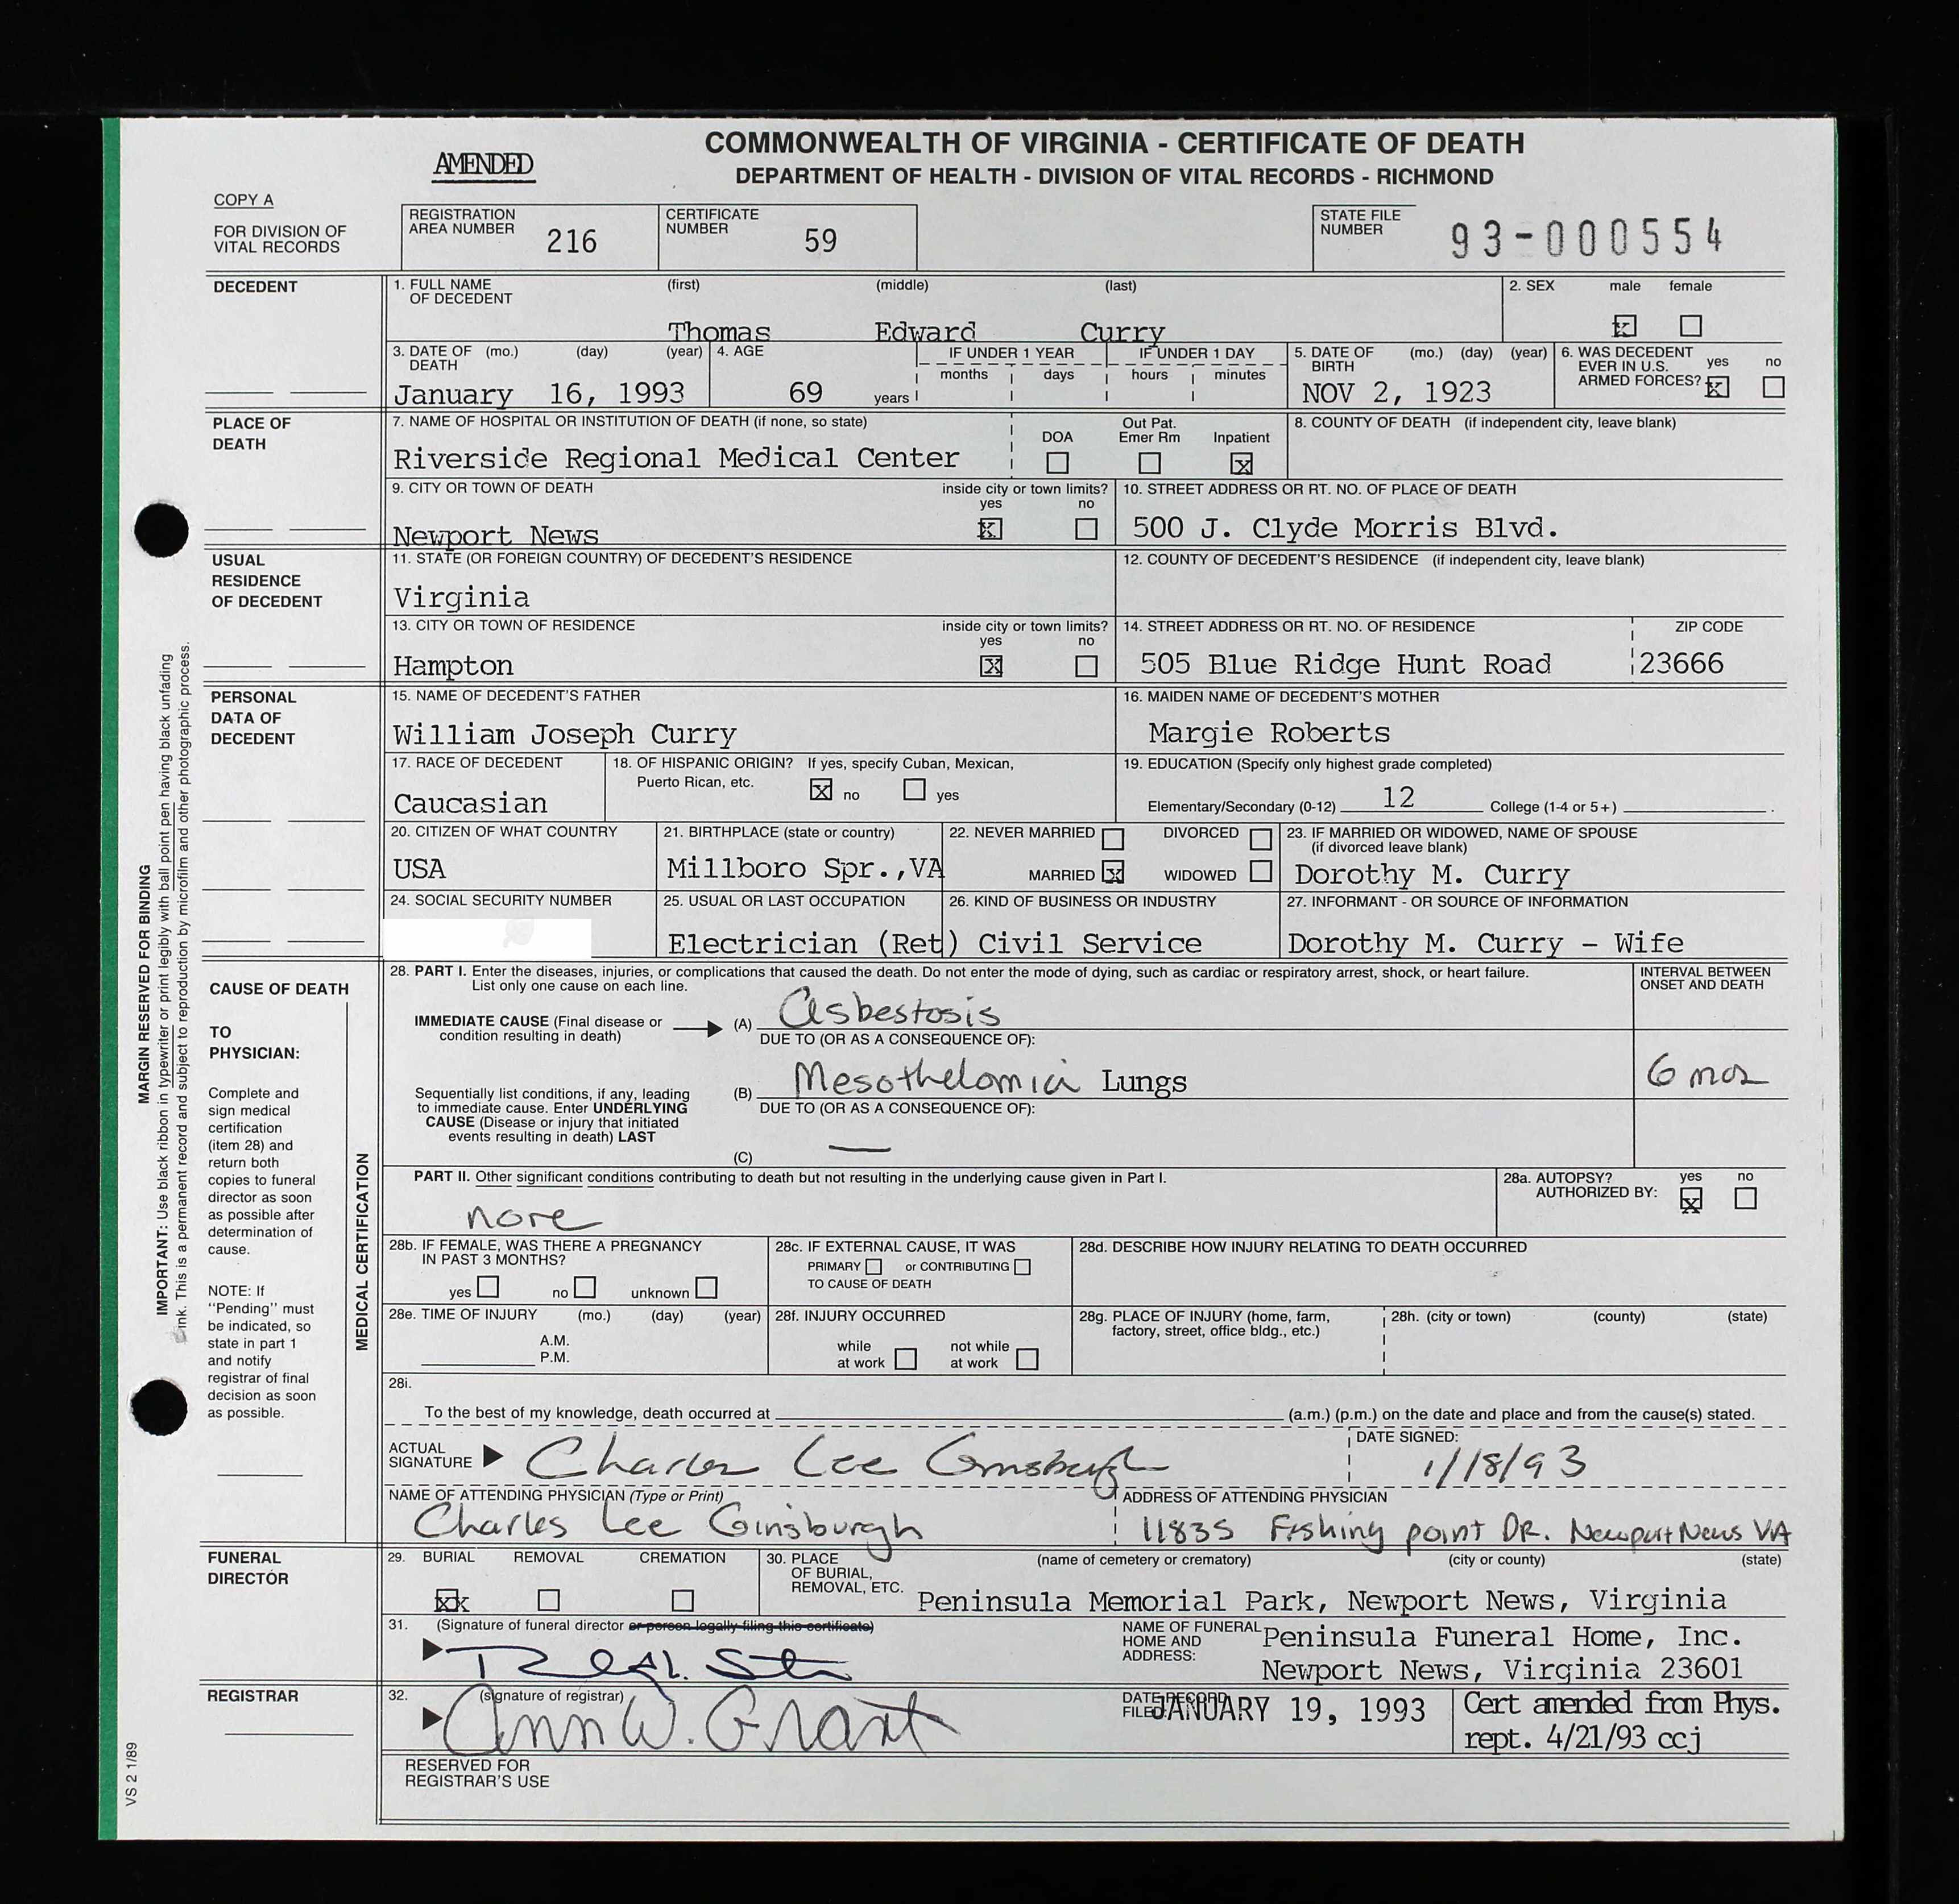 COMMONWEALTH OF VIRGINIA - CERTIFICATE OF DEATH
AMENDED
DEPARTMENT OF HEALTH - DIVISION OF VITAL RECORDS - RICHMOND
COPY A
FOR DIVISION OF
VITAL RECORDS
REGISTRATION
AREA NUMBER 216
CERTIFICATE
NUMBER 59
STATE FILE
NUMBER 93-000554
DECEDENT
1. FULL NAME
OF DECEDENT
(first) (middle) (last)
Thomas Edward Curry
2. SEX male female
X
3. DATE OF (mo.) (day) (year)
DEATH
January 16, 1993
4. AGE
69 years
IF UNDER 1 YEAR
months days
IF UNDER 1 DAY
hours minutes
5. DATE OF (mo.) (day) (year)
BIRTH
NOV 2, 1923
6. WAS DECEDENT
EVER IN U.S.
ARMED FORCES? yes no
X
PLACE OF
DEATH
7. NAME OF HOSPITAL OR INSTITUTION OF DEATH (if none, so state)
Riverside Regional Medical Center
DOA
Out Pat.
Emer Rm
Inpatient
X
8. COUNTY OF DEATH (if independent city, leave blank)
9. CITY OR TOWN OF DEATH
Newport News
inside city or town limits?
yes no
X
10. STREET ADDRESS OR RT. NO. OF PLACE OF DEATH
500 J. Clyde Morris Blvd.
USUAL
RESIDENCE
OF DECEDENT
11. STATE (OR FOREIGN COUNTRY) OF DECEDENT'S RESIDENCE
Virginia
12. COUNTY OF DECEDENT'S RESIDENCE (if independent city, leave blank)
13. CITY OR TOWN OF RESIDENCE
Hampton
inside city or town limits?
yes no
X
14. STREET ADDRESS OR RT. NO. OF RESIDENCE
505 Blue Ridge Hunt Road
ZIP CODE
23666
PERSONAL
DATA OF
DECEDENT
15. NAME OF DECEDENT'S FATHER
William Joseph Curry
16. MAIDEN NAME OF DECEDENT'S MOTHER
Margie Roberts
17. RACE OF DECEDENT
Caucasian
18. OF HISPANIC ORIGIN? If yes, specify Cuban, Mexican,
Puerto Rican, etc. X no yes
19. EDUCATION (Specify only highest grade completed)
Elementary/Secondary (0-12) 12 College (1-4 or 5+)
20. CITIZEN OF WHAT COUNTRY
USA
21. BIRTHPLACE (state or country)
Millboro Spr.,VA
22. NEVER MARRIED DIVORCED
MARRIED X WIDOWED
23. IF MARRIED OR WIDOWED, NAME OF SPOUSE
(if divorced leave blank)
Dorothy M. Curry
24. SOCIAL SECURITY NUMBER
25. USUAL OR LAST OCCUPATION
Electrician (Ret)
26. KIND OF BUSINESS OR INDUSTRY
Civil Service
27. INFORMANT - OR SOURCE OF INFORMATION
Dorothy M. Curry - Wife
CAUSE OF DEATH
TO
PHYSICIAN:
Complete and
sign medical
certification
(item 28) and
return both
copies to funeral
director as soon
as possible after
determination of
cause.
NOTE: If
"Pending" must
be indicated, so
state in part 1
and notify
registrar of final
decision as soon
as possible.
MEDICAL CERTIFICATION
28. PART I. Enter the diseases, injuries, or complications that caused the death. Do not enter the mode of dying, such as cardiac or respiratory arrest, shock, or heart failure.
List only one cause on each line.
INTERVAL BETWEEN
ONSET AND DEATH
IMMEDIATE CAUSE (Final disease or
condition resulting in death)
(A) Asbestosis
DUE TO (OR AS A CONSEQUENCE OF):
Sequentially list conditions, if any, leading
to immediate cause. Enter UNDERLYING
CAUSE (Disease or injury that initiated
events resulting in death) LAST
(B) Mesothelomia Lungs
6 mos
DUE TO (OR AS A CONSEQUENCE OF):
(C) —
PART II. Other significant conditions contributing to death but not resulting in the underlying cause given in Part I.
none
28a. AUTOPSY? yes no
AUTHORIZED BY: X
28b. IF FEMALE, WAS THERE A PREGNANCY
IN PAST 3 MONTHS?
yes no unknown
28c. IF EXTERNAL CAUSE, IT WAS
PRIMARY or CONTRIBUTING
TO CAUSE OF DEATH
28d. DESCRIBE HOW INJURY RELATING TO DEATH OCCURRED
28e. TIME OF INJURY (mo.) (day) (year)
A.M.
P.M.
28f. INJURY OCCURRED
while
at work
not while
at work
28g. PLACE OF INJURY (home, farm,
factory, street, office bldg., etc.)
28h. (city or town) (county) (state)
28i.
To the best of my knowledge, death occurred at (a.m.) (p.m.) on the date and place and from the cause(s) stated.
ACTUAL
SIGNATURE Charles Lee Ginsburgh
DATE SIGNED:
1/18/93
NAME OF ATTENDING PHYSICIAN (Type or Print)
Charles Lee Ginsburgh
ADDRESS OF ATTENDING PHYSICIAN
11835 Fishing point DR. Newport News VA
FUNERAL
DIRECTOR
29. BURIAL REMOVAL CREMATION
XX
30. PLACE
OF BURIAL,
REMOVAL, ETC.
(name of cemetery or crematory) (city or county) (state)
Peninsula Memorial Park, Newport News, Virginia
31. (Signature of funeral director or person legally filing this certificate)
NAME OF FUNERAL
HOME AND
ADDRESS:
Peninsula Funeral Home, Inc.
Newport News, Virginia 23601
REGISTRAR
32. (signature of registrar)
Ann W. Grant
DATE RECORD
FILED JANUARY 19, 1993
Cert amended from Phys.
rept. 4/21/93 ccj
RESERVED FOR
REGISTRAR'S USE
MARGIN RESERVED FOR BINDING
IMPORTANT: Use black ribbon in typewriter or print legibly with ball point pen having black unfading
ink. This is a permanent record and subject to reproduction by microfilm and other photographic process.
VS 2 1/89